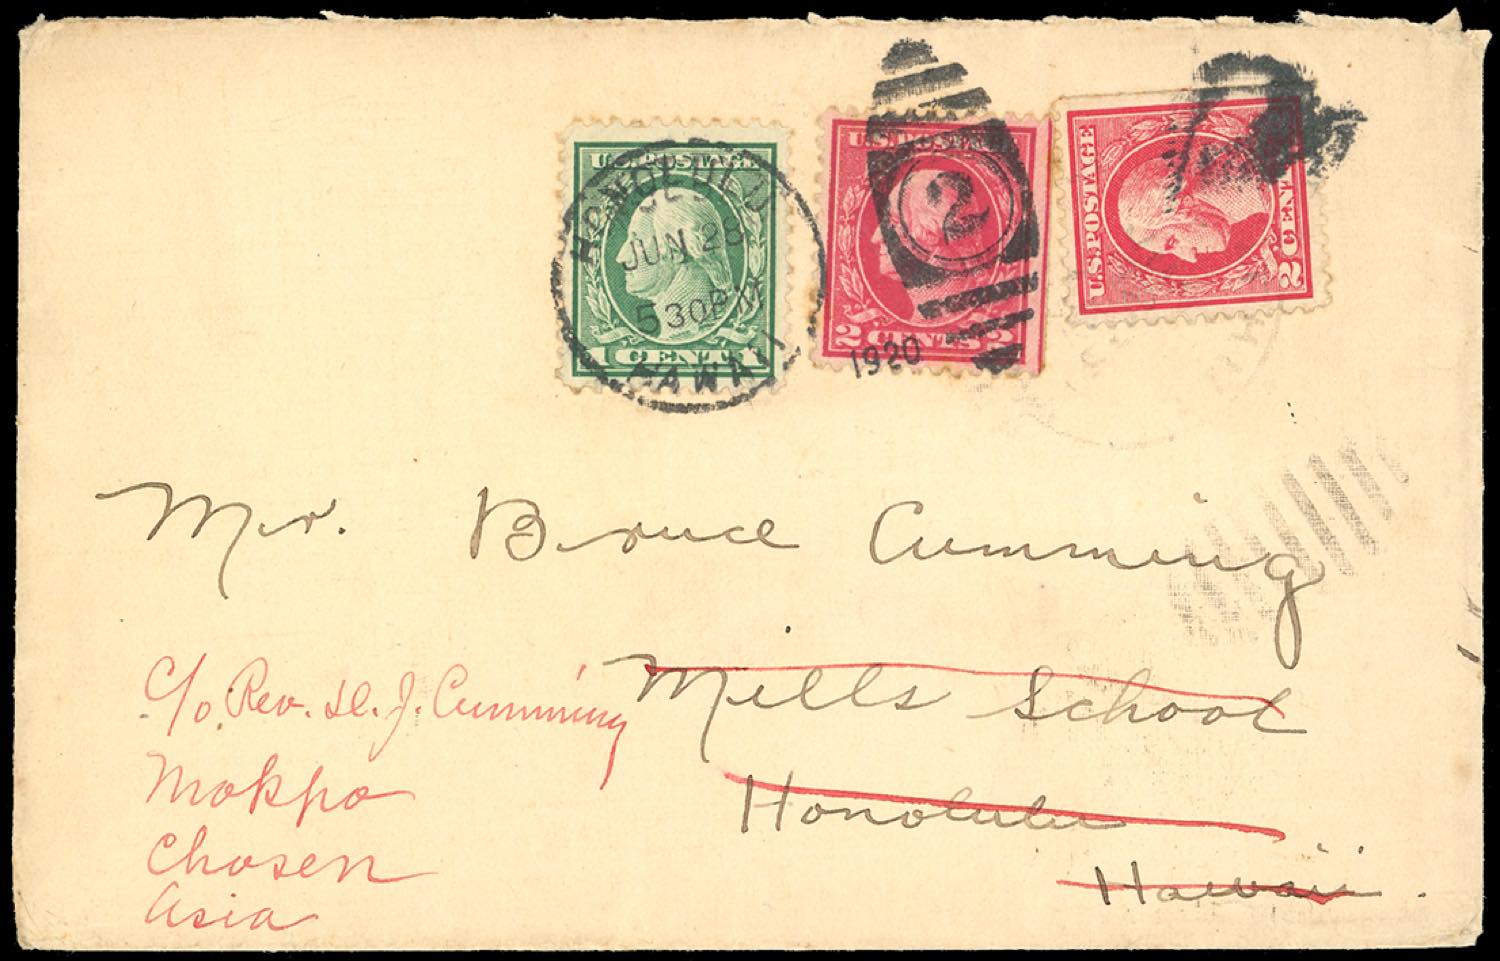 U.S. POSTAGE
1 CENT 1
HONOLULU
JUN 28
530PM
HAWAII
U.S. POSTAGE
2 CENTS 2
2
1920
U.S. POSTAGE
2 CENT
Mr. Bruce Cumming
Mills School
Honolulu
Hawaii.
c/o Rev. D. J. Cumming
Mokpo
Chosen
Asia